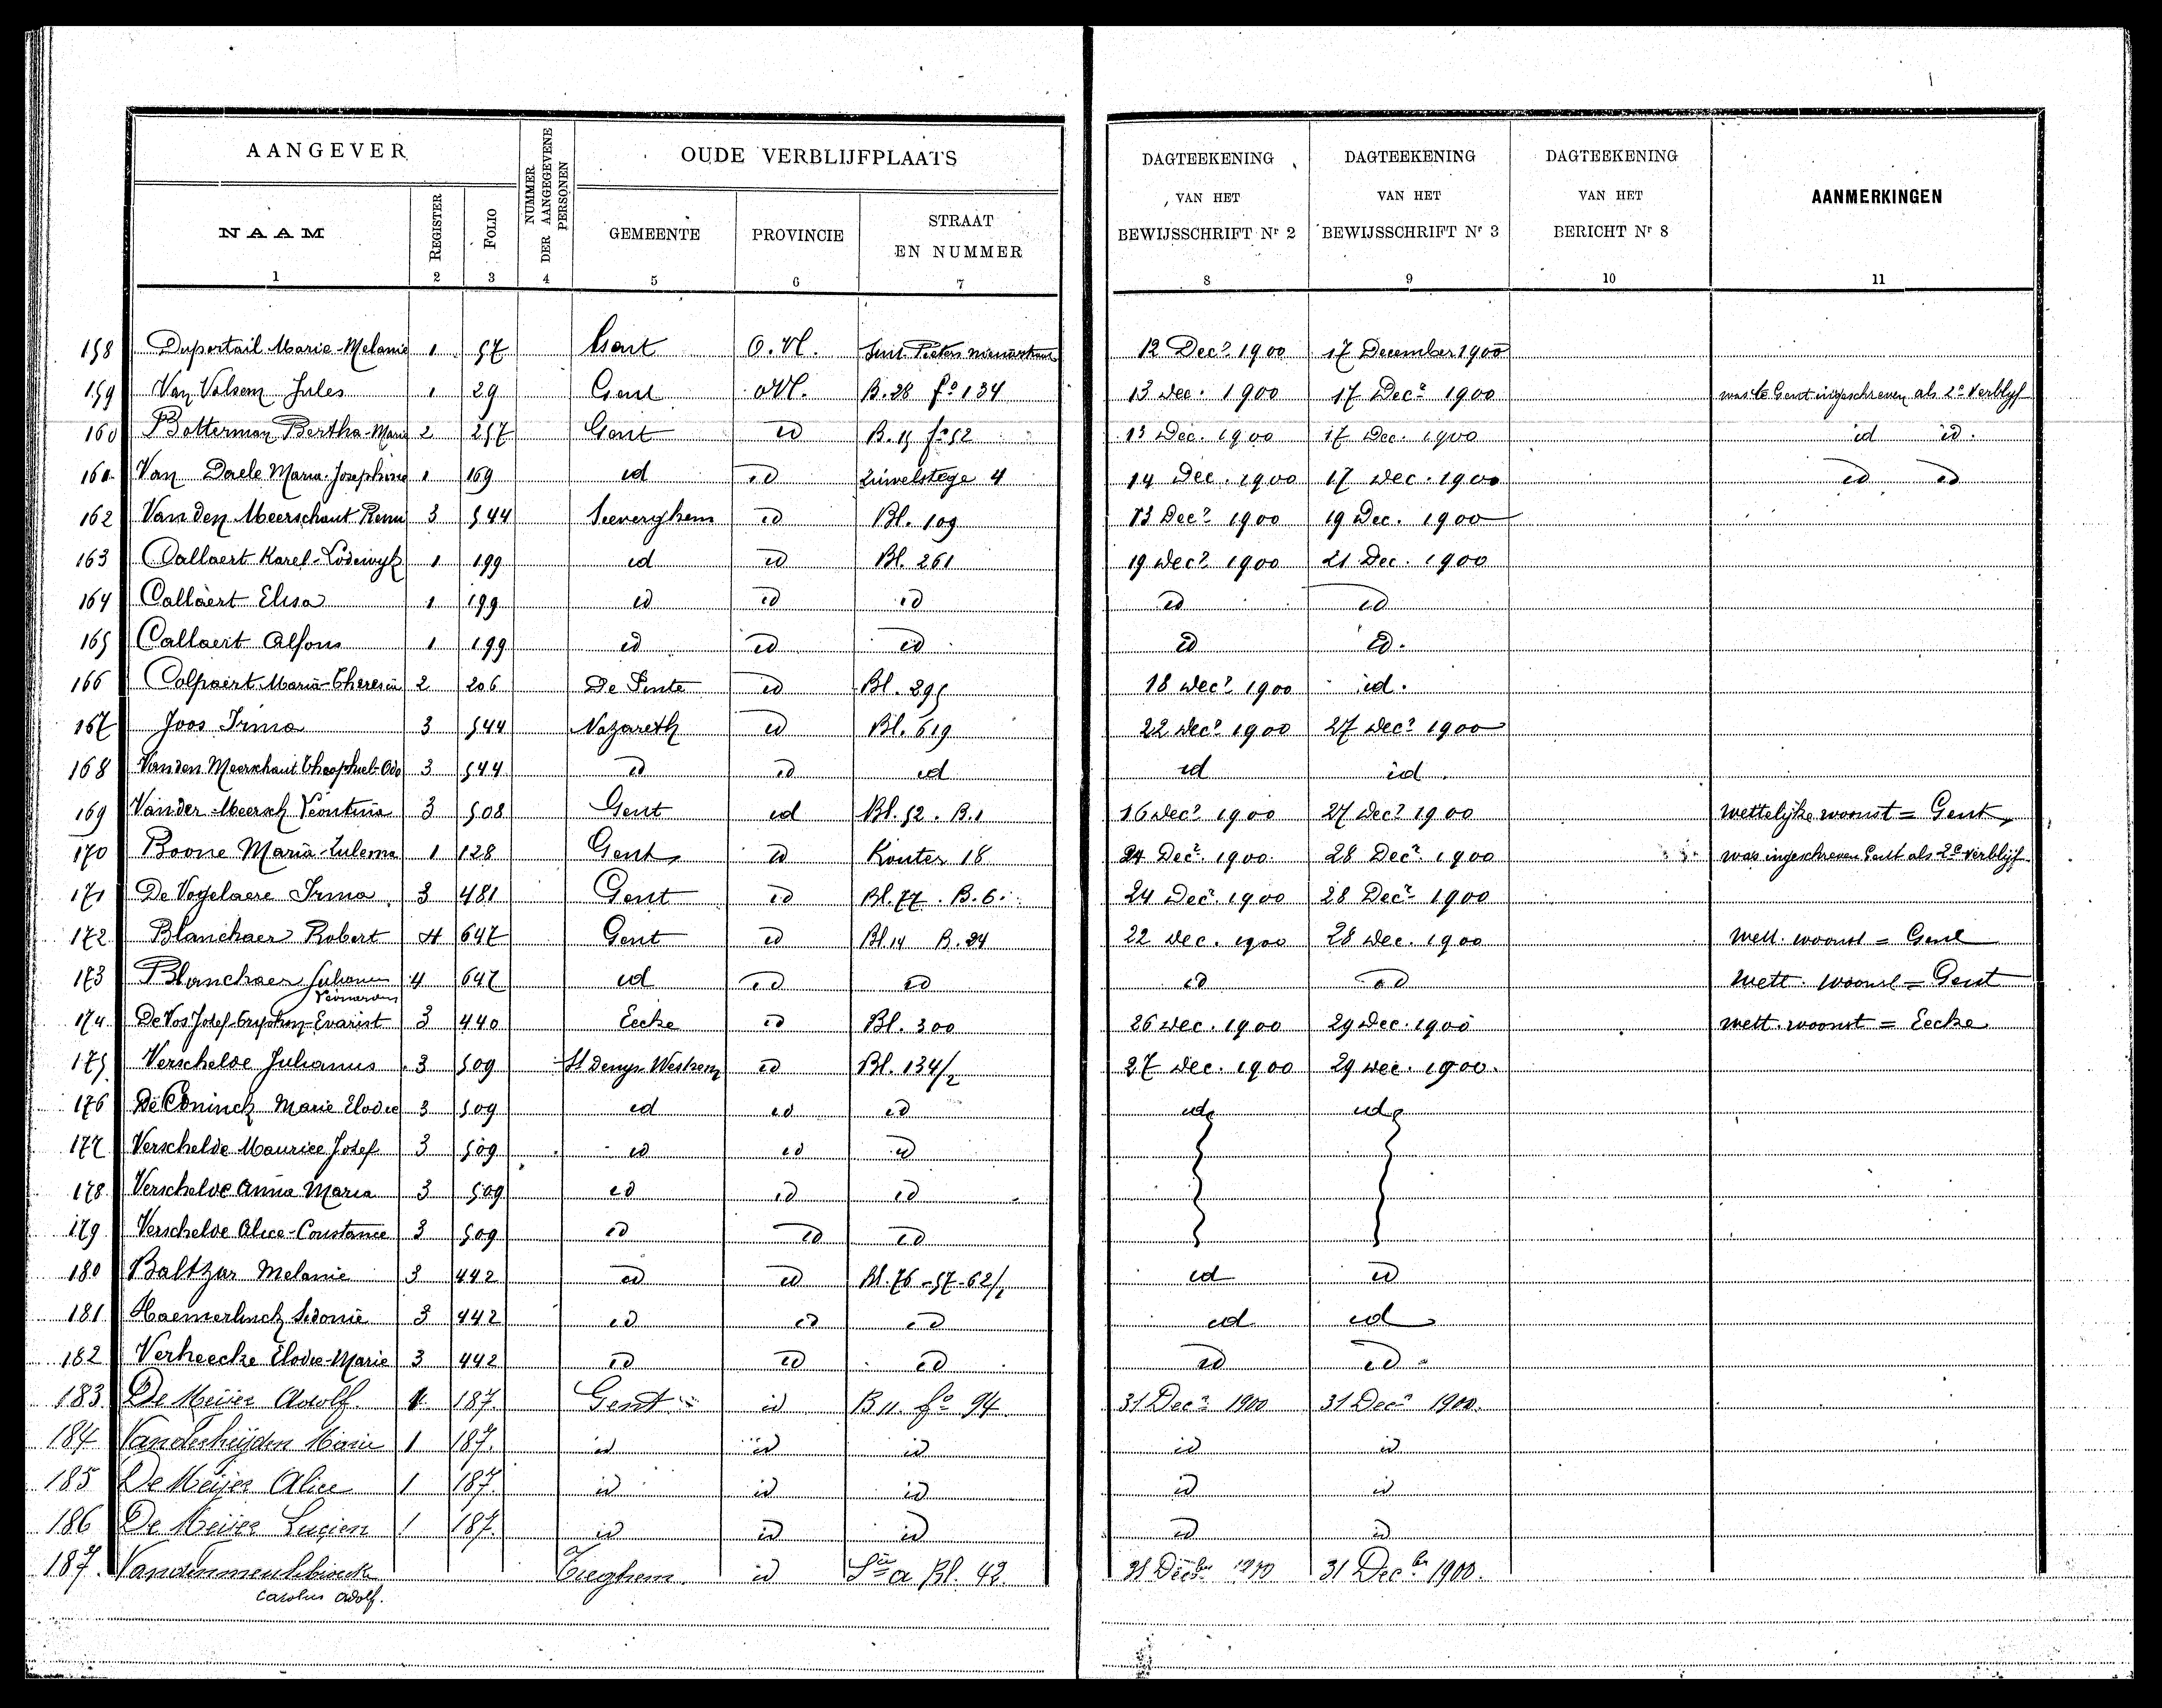 AANGEVER
NUMMER DER AANGEGEVENE PERSONEN
OUDE VERBLIJFPLAATS
DAGTEEKENING VAN HET BEWIJSSCHRIFT Nr 2
DAGTEEKENING VAN HET BEWIJSSCHRIFT Nr 3
DAGTEEKENING VAN HET BERICHT Nr 8
AANMERKINGEN
NAAM REGISTER FOLIO GEMEENTE PROVINCIE STRAAT EN NUMMER
1 2 3 4 5 6 7 8 9 10 11
158 Duportail Marie-Melanie 1 57 Gent O.Vl. Sint Pieters nieuwstraat 12 Decr 1900 17 December 1900
159 Van Volsem Jules 1 29 Gent O Vl. B. 28 fo 134 13 Dec. 1900 17 Decr 1900 was te Gent ingeschreven als 2e Verblijf
160 Botterman Bertha-Marie 2 257 Gent id B. 15 fo 52 13 Dec. 1900 17 Dec. 1900 id id.
161 Van Daele Maria-Josephine 1 169 id id 4 14 Dec. 1900 17 Dec. 1900 id id
162 Van den Meerschaut Remi 3 544 Seeverghem id Bl. 109 13 Decr 1900 19 Dec. 1900
163 Callaert Karel-Lodewyk 1 199 id id Bl. 261 19 Decr 1900 21 Dec. 1900
164 Callaert Elisa 1 199 id id id id id
165 Callaert Alfons 1 199 id id id id id.
166 Colpaert Maria-Theresia 2 206 De Pinte id Bl. 295 18 Decr 1900 id.
167 Joos Irma 3 544 Nazareth id Bl. 619 22 Decr 1900 27 Decr 1900
168 Van den Meerschaut Theophiel-Odo 3 544 id id id id id.
169 Van der Meersch Leontina 3 508 Gent id Bl. 52. B.1 16 Decr 1900 27 Decr 1900 wettelijke woonst = Gent
170 Boone Maria-Zulema 1 128 Gent id Kouter 18 24 Decr 1900 28 Decr 1900 was ingeschreven Gent als 2e verblijf
171 De Vogelaere Irma 3 481 Gent id Bl. 77. B. 6. 24 Decr 1900 28 Decr 1900
172 Blanchaer Robert 4 647 Gent id Bl 14 B. 24 22 Dec. 1900 28 Dec. 1900 wett. woonst = Gent
173 Blanchaer Juliana 4 647 id id id id id wett. woonst = Gent
174 De Vos Josef Evarist 3 440 Eecke id Bl. 300 26 Dec. 1900 29 Dec. 1900 wett. woonst = Eecke
175 Verschelde Julianus 3 509 St Denys-Westrem id Bl. 134/2 27 Dec. 1900 29 Dec. 1900.
176 De Coninck Marie Elodie 3 509 id id id id id
177 Verschelde Maurice Josef 3 509 id id id
178 Verschelde Anna Maria 3 509 id id id
179 Verschelde Alice-Constance 3 509 id id id
180 Baltzar Melanie 3 442 id id Bl. 76-57-62/2 id id
181 Haemerlinck Sidonie 3 442 id id id id id
182 Verheecke Elodie-Marie 3 442 id id id id id
183 De Meijer Adolf. 1 187. Gent id B 11. fo 94 31 Decr 1900 31 Decr 1900.
184 Vanderheijden Marie 1 187. id id id id id
185 De Meijer Alice 1 187. id id id id id
186 De Meijer Lucien 1 187. id id id id id
187. Tieghem. id Sie a Bl. 42. 31 Decber 1900 31 Decber 1900.
Carolus Adolf.